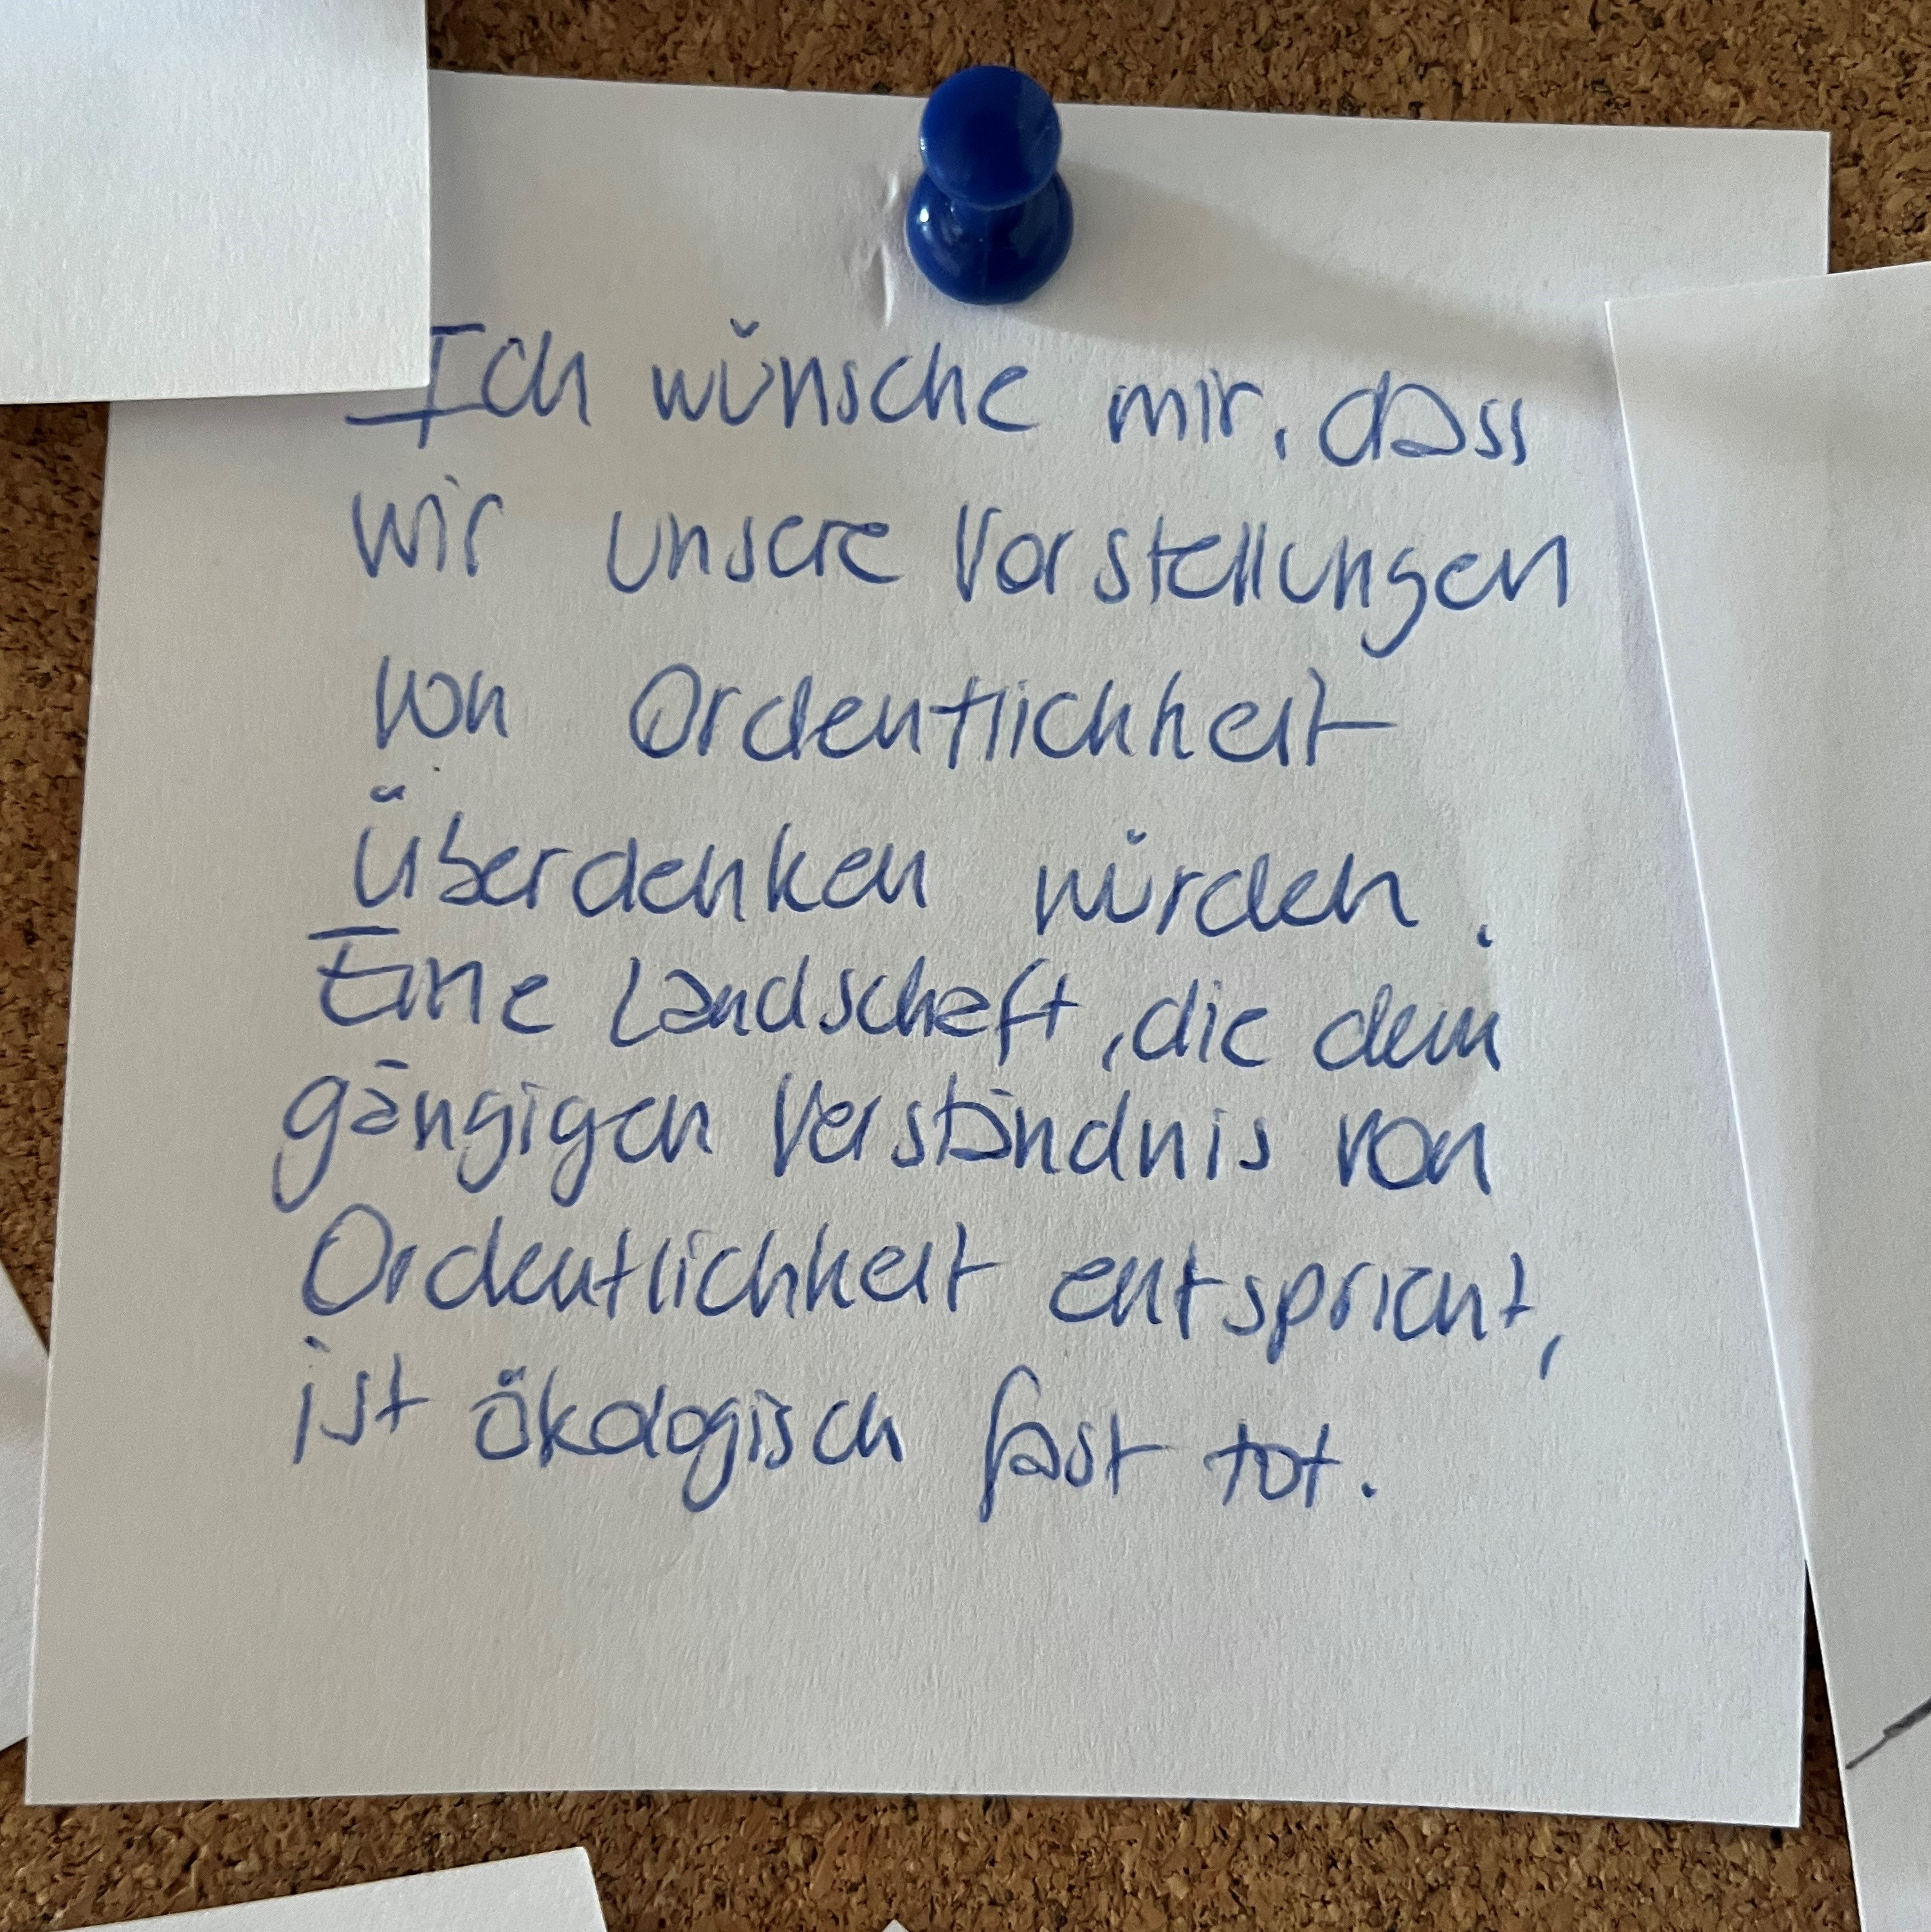 Ich wünsche mir, dass
wir unsere Vorstellungen
von Ordentlichkeit
überdenken würden.
Eine Landschaft, die dem
gängigen Verständnis von
Ordentlichkeit entspricht,
ist ökologisch fast tot.